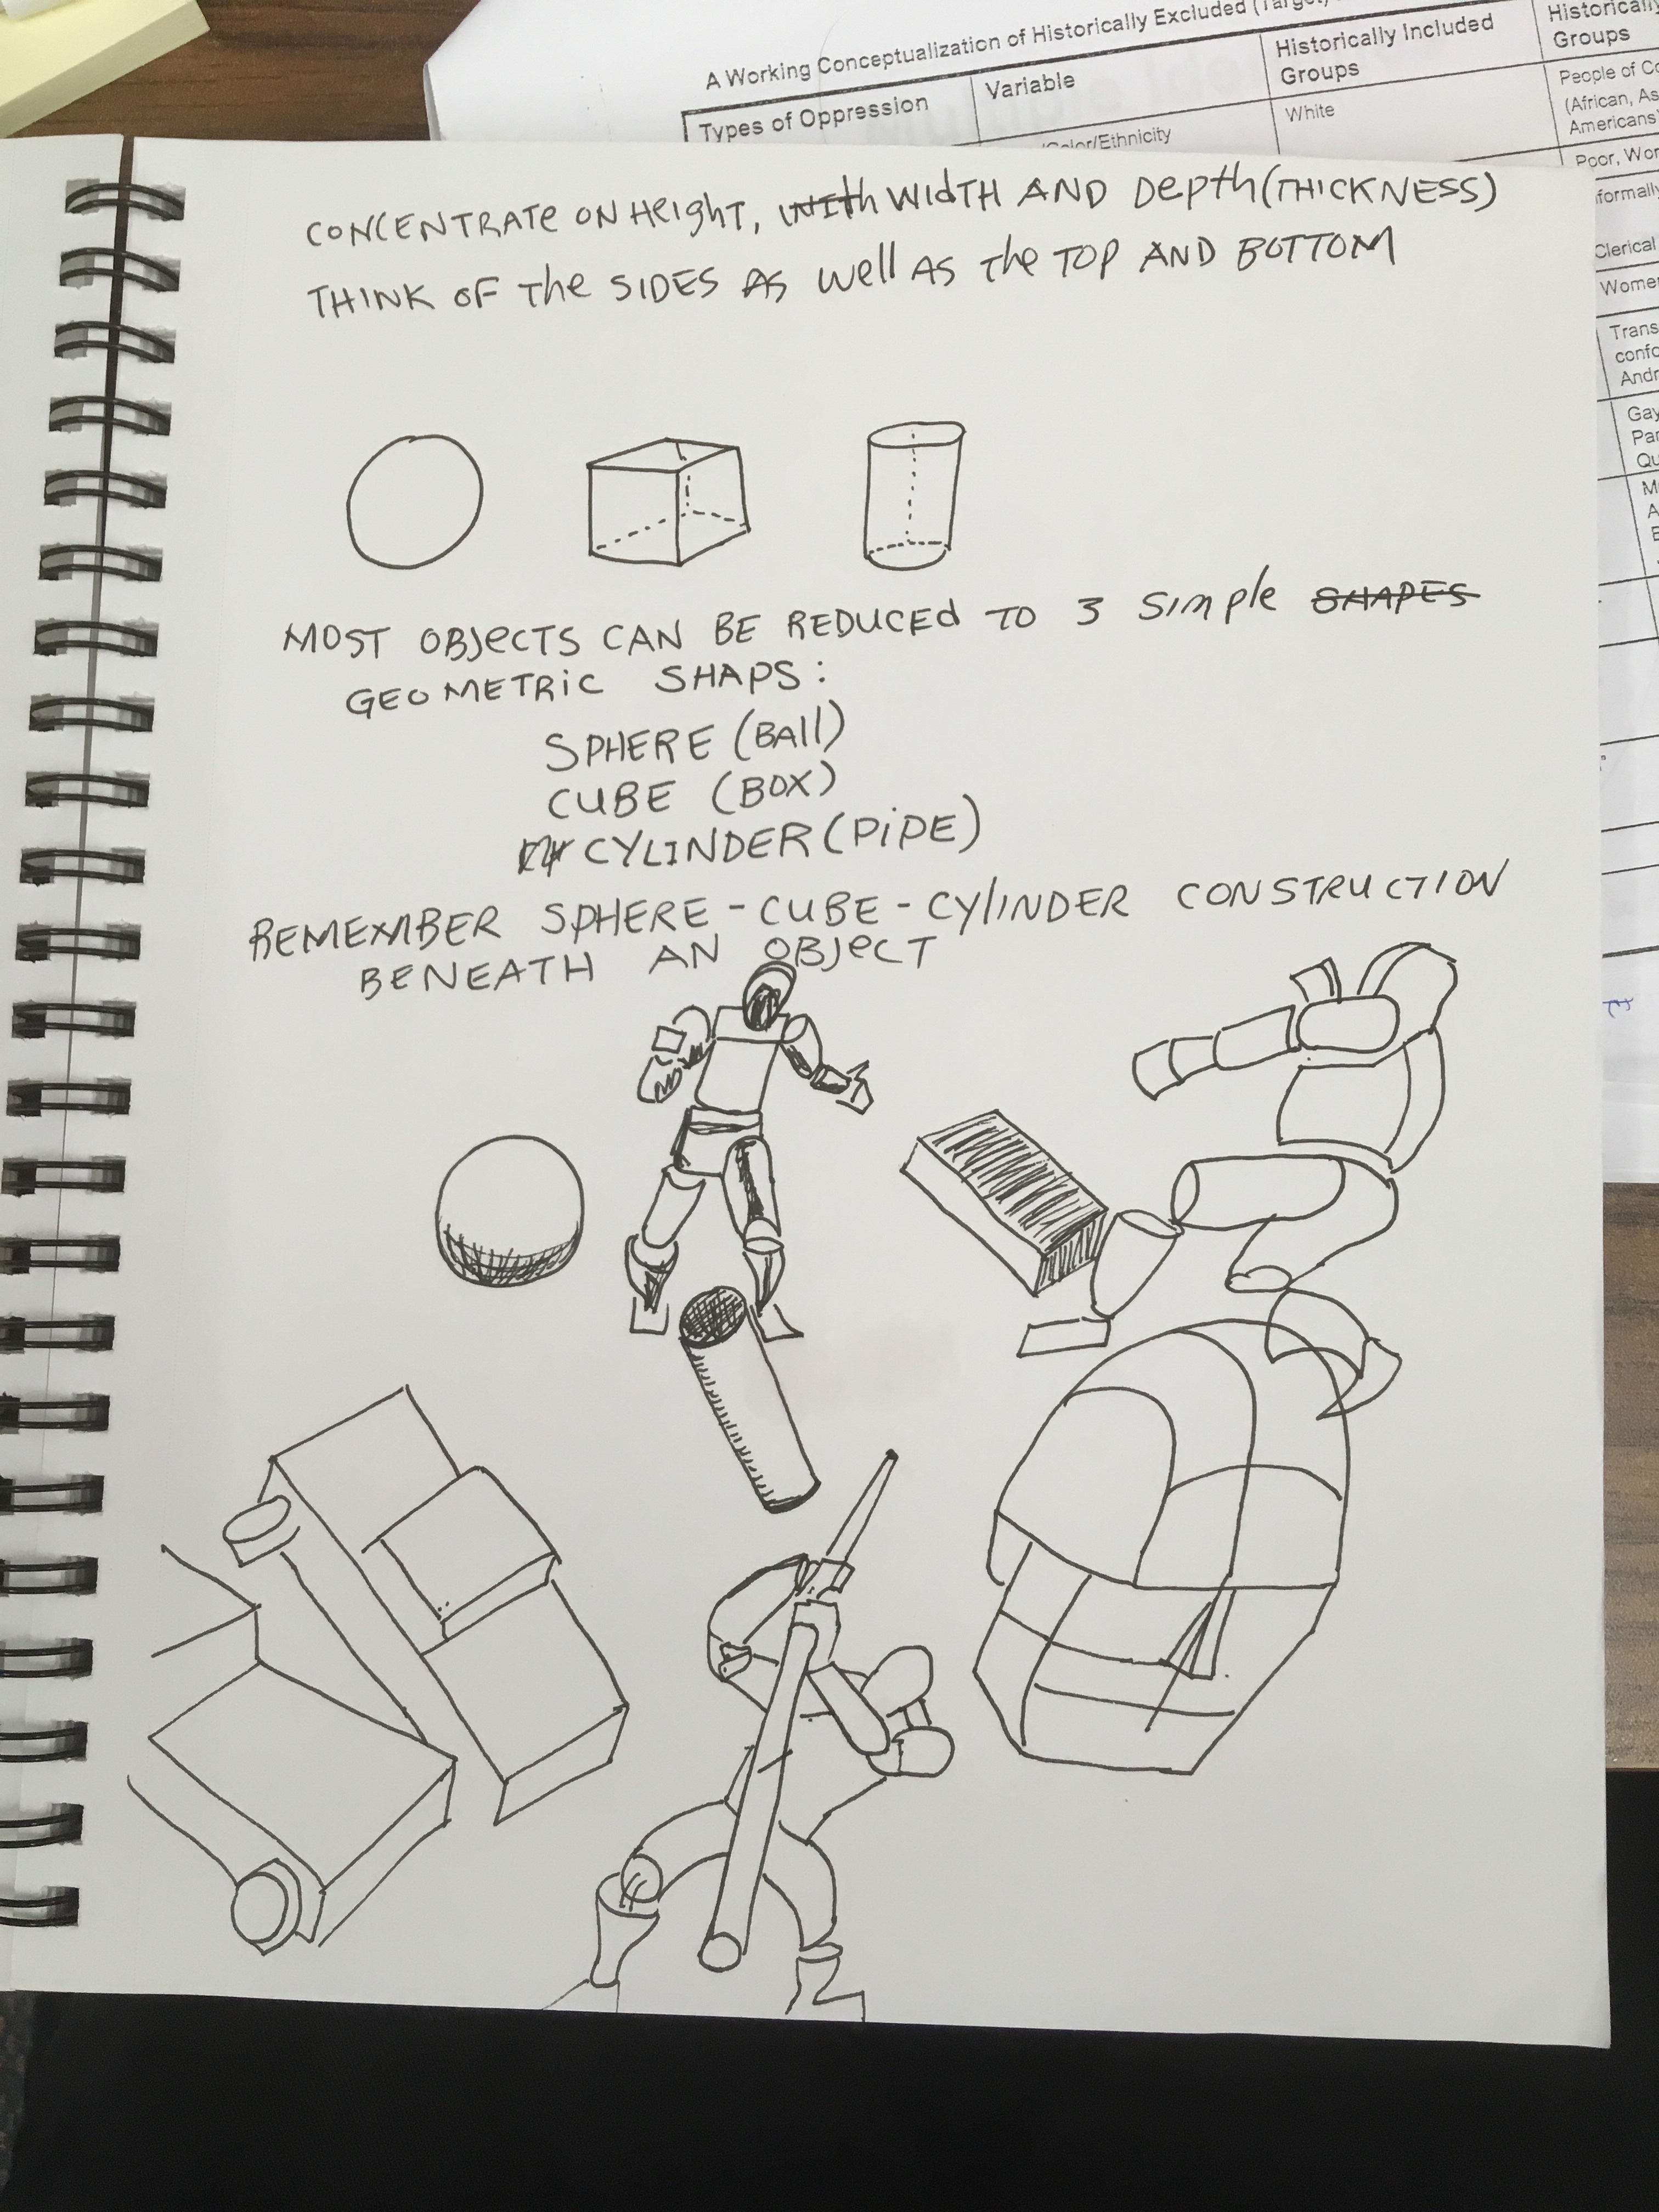 A Working Conceptualization of Historically Excluded (Target)
Types of Oppression
Variable
Historically Included
Groups
Historically
Groups
Color/Ethnicity
White
People of Co
(African, As
Americans)
Poor, Wor
Clerical
Wome
Trans
confo
Andr
Gay
Par
Qu
CONCENTRATE ON HEIGHT, WITH WIDTH AND DEPTH (THICKNESS)
THINK OF THE SIDES AS WELL AS THE TOP AND BOTTOM
MOST OBJECTS CAN BE REDUCED TO 3 SIMPLE SHAPES
GEOMETRIC SHAPS:
SPHERE (BALL)
CUBE (BOX)
CYLINDER (PIPE)
REMEMBER SPHERE - CUBE - CYLINDER CONSTRUCTION
BENEATH AN OBJECT